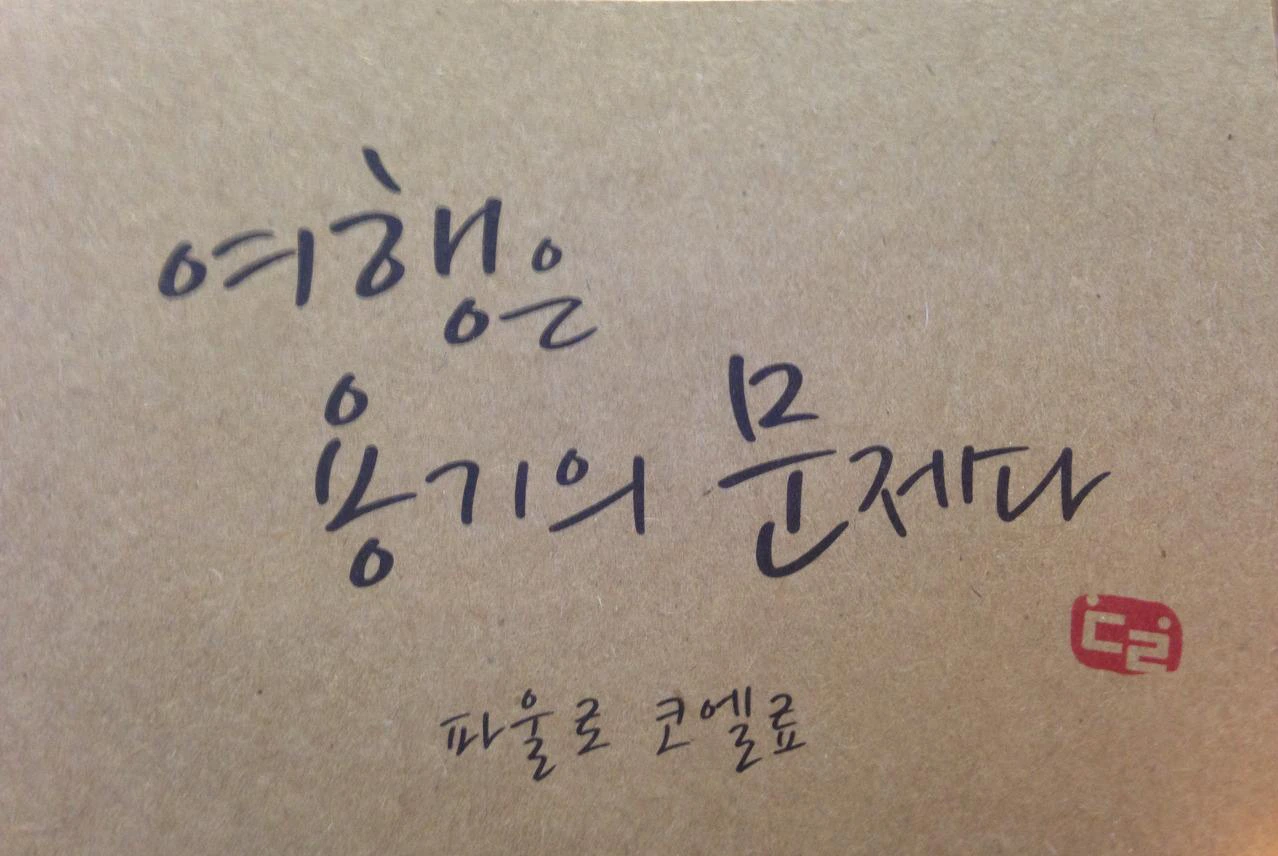 여행은
용기의 문제다
파울로 코엘료